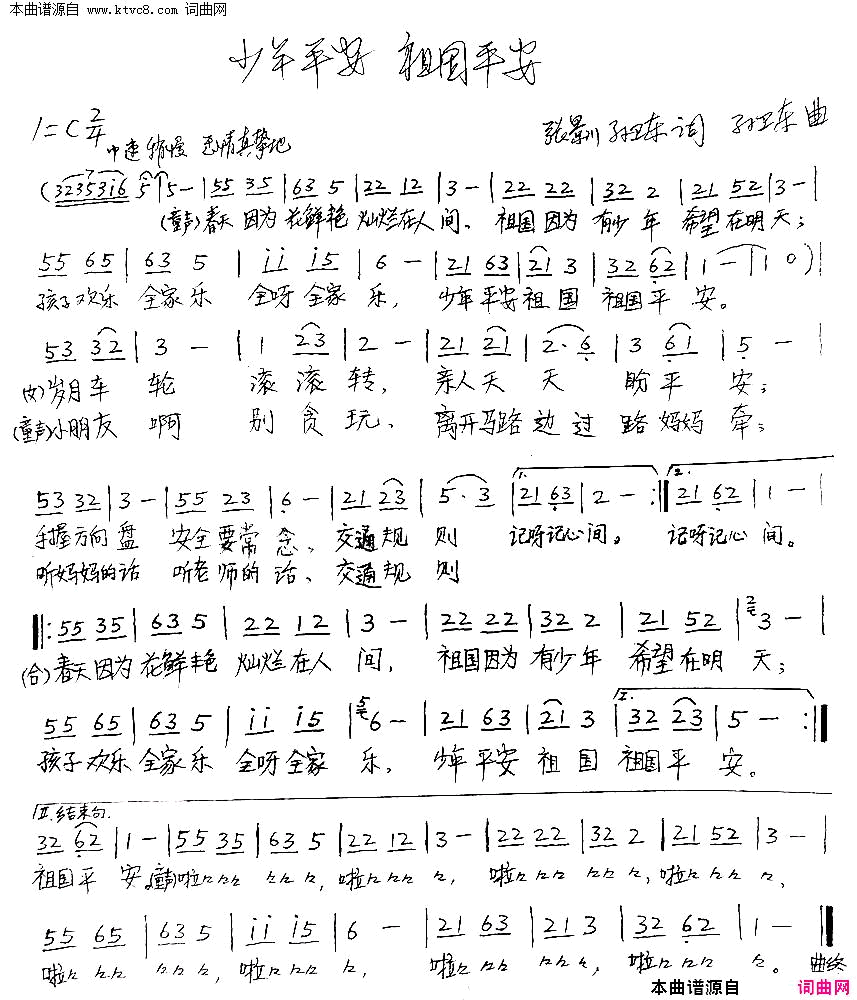 本曲谱源自
www.ktvc8.com 词曲网
少年平安 祖国平安
1=C 2/4
中速稍慢 感情真挚地
张景川 孙卫东 词 孙卫东 曲
(3235316 5 | 5 - | 55 35 | 63 5 | 22 12 | 3 - | 22 22 | 32 2 | 21 52 | 3 - |
(童声)春天因为花鲜艳灿烂在人间、祖国因为有少年希望在明天;
55 65 | 63 5 | ii i5 | 6 - | 21 63 | 21 3 | 32 62 | 1 - | 1 0) |
孩子欢乐全家乐全呀全家乐,少年平安祖国祖国平安。
53 32 | 3 - | 1 23 | 2 - | 21 21 | 2· 6 | 3 61 | 5 - |
(女)岁月车轮滚滚转,亲人天天盼平安;
(童声)小朋友啊别贪玩、离开马路边过路妈妈牵;
1. 2.
53 32 | 3 - | 55 23 | 6 - | 21 23 | 5· 3 | 21 63 | 2 - :|| 21 62 | 1 - |
手握方向盘安全要常念、交通规则记呀记心间。记呀记心间。
听妈妈的话听老师的话、交通规则
||: 55 35 | 63 5 | 22 12 | 3 - | 22 22 | 32 2 | 21 52 | 2 3 - |
(合)春天因为花鲜艳灿烂在人间,祖国因为有少年希望在明天;
I.
55 65 | 63 5 | ii i5 | 5 6 - | 21 63 | 21 3 | 32 23 | 5 - :||
孩子欢乐全家乐全呀全家乐,少年平安祖国祖国平安。
II.结束句.
32 62 | 1 - | 55 35 | 63 5 | 22 12 | 3 - | 22 22 | 32 2 | 21 52 | 3 - |
祖国平安。(童声)啦
55 65 | 63 5 | ii i5 | 6 - | 21 63 | 21 3 | 32 62 | 1 - ||
啦 啦 啦 啦 曲终
本曲谱源自
词曲网